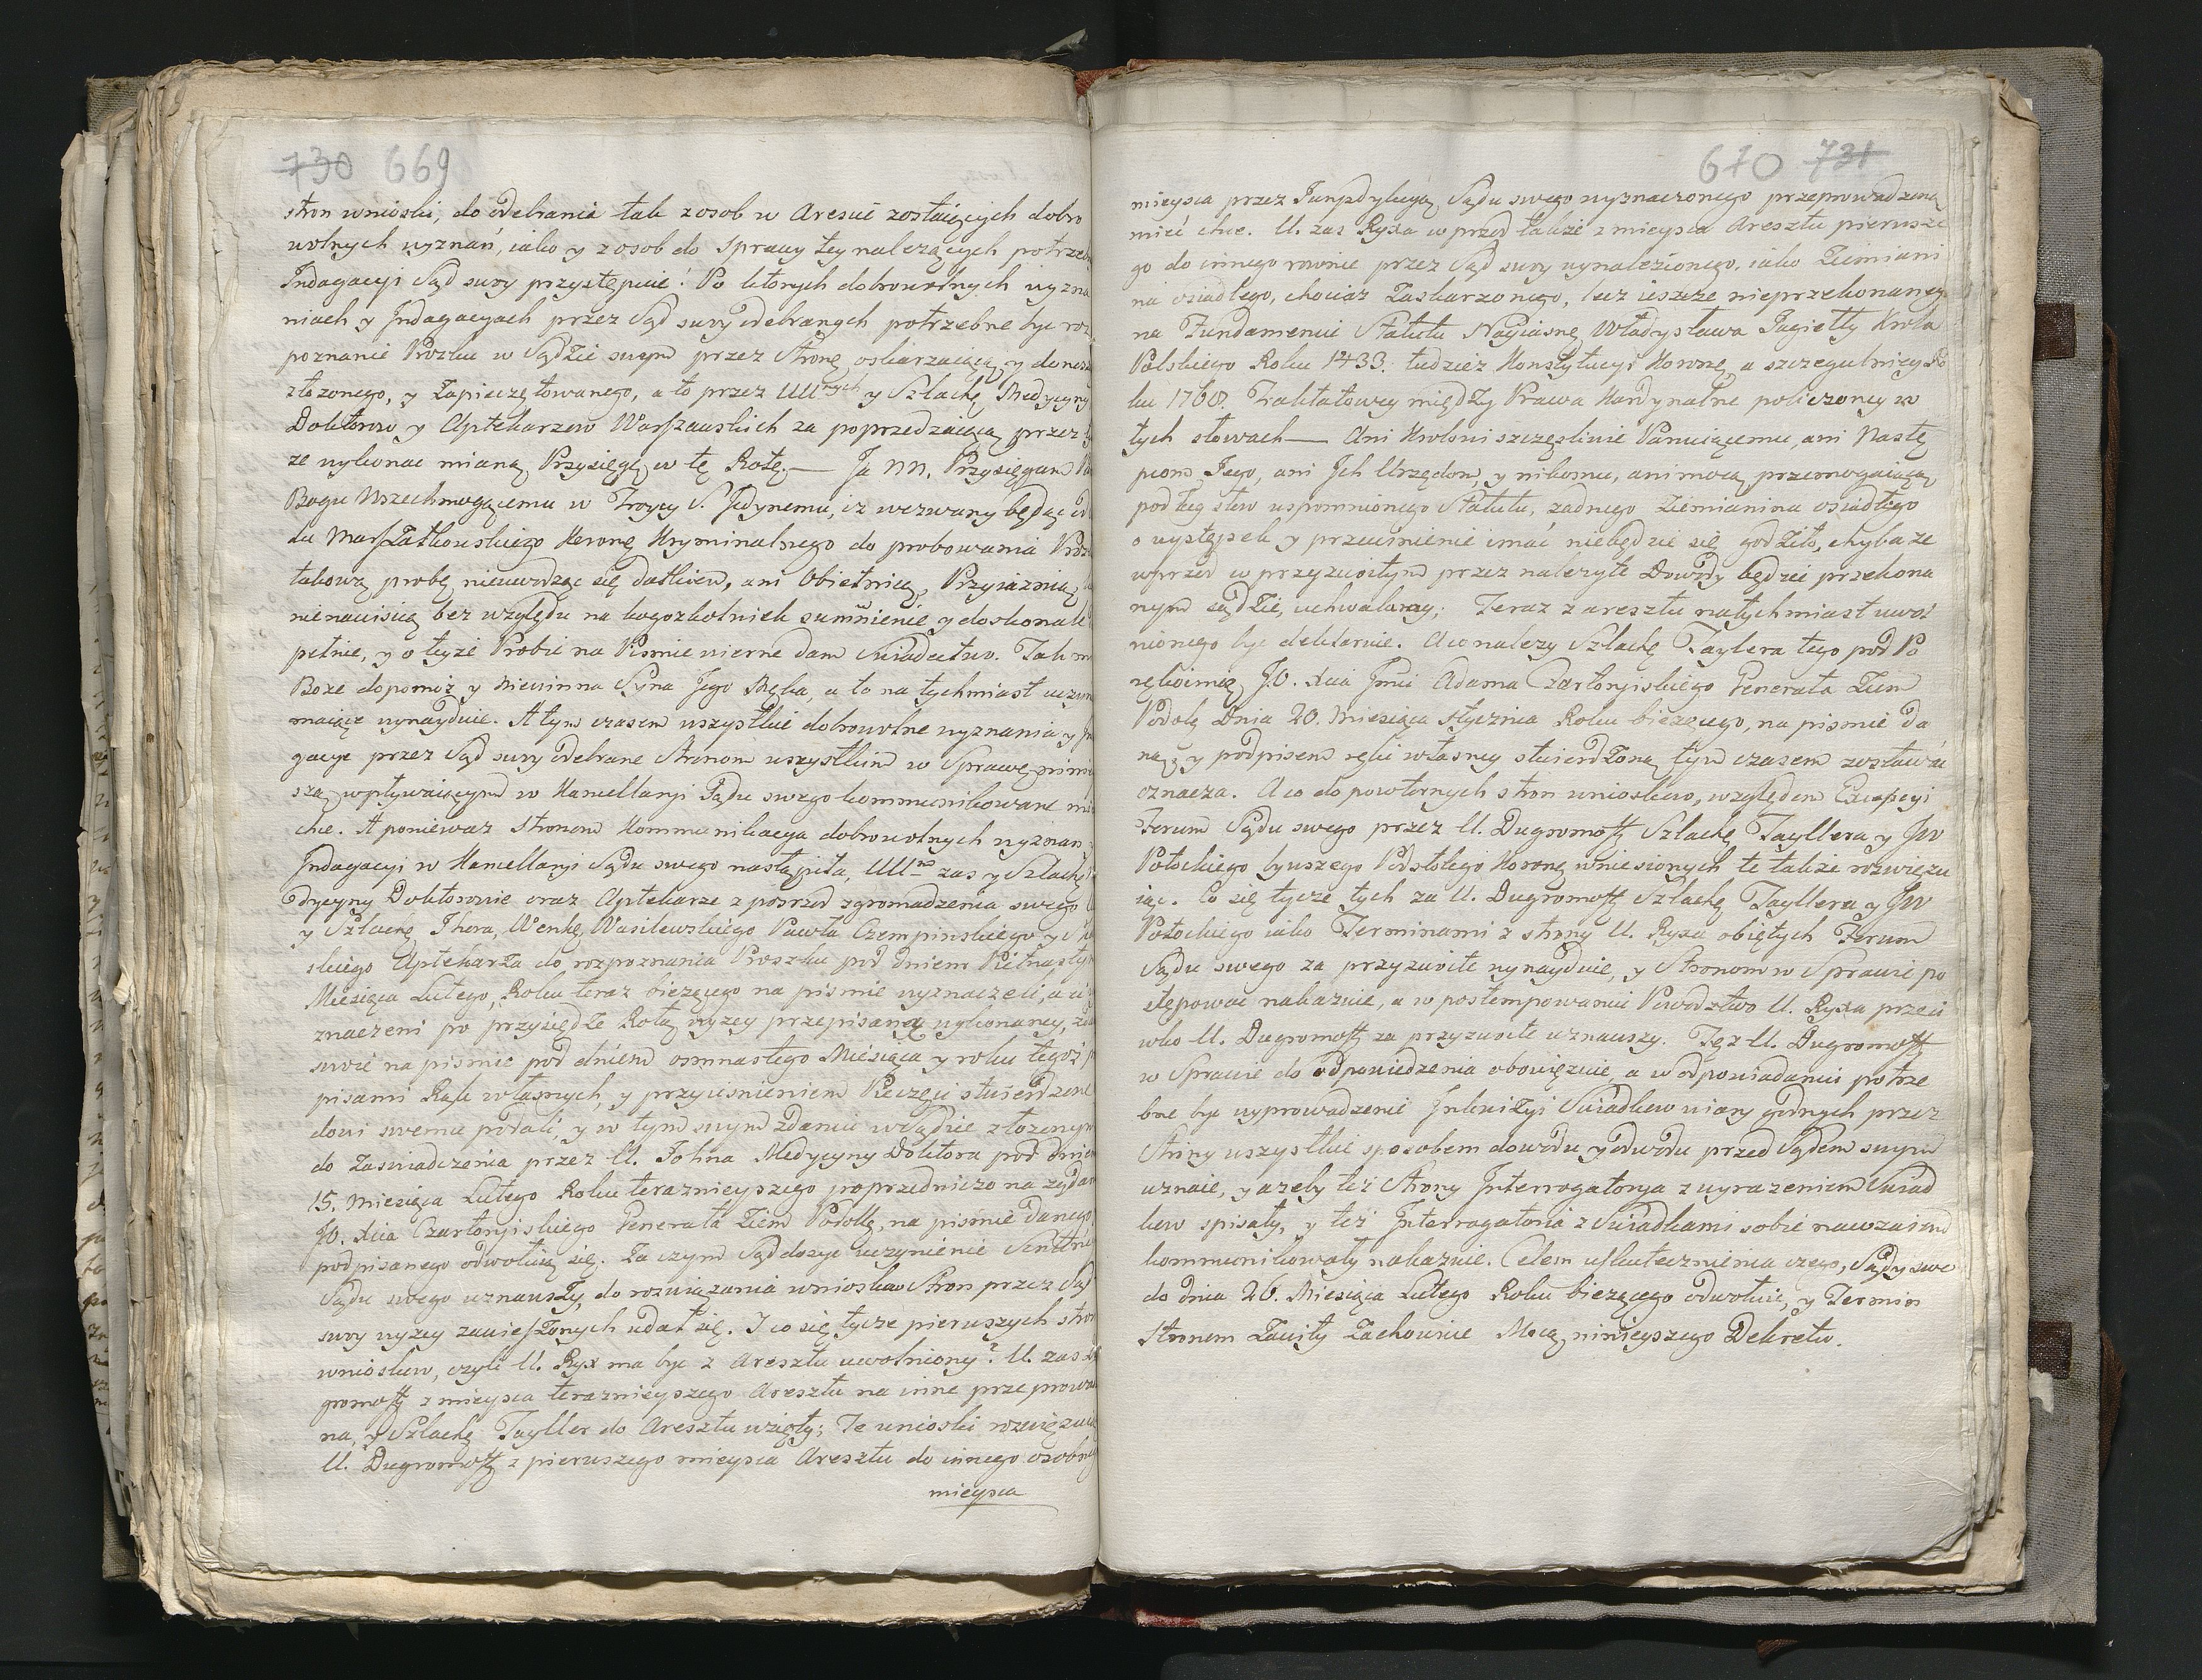 730 669
stron wnioski, do odebrania tak z osob w Areście zostaiących dobro
wolnych wyznań, iako y z osob do sprawy tey należących potrzeb
Indagacyi Sąd swoy przystępuie! Po których dobrowolnych wyzna
niach y Indagacyach przez Sąd swoy odebranych potrzebne być roz
poznanie Prozku w Sądzie swym przez Stronę oskarzaiącą y donosz
złozonego, y Zapieczętowanego, a to przez UUrnych y Szlachę Medycyny
Doktorow y Aptekarzew Warszawskich za poprzedzaiącą przez
ze wykonać mianą Przysięgę w tę Rotę. — Ja NN. Przysięgam
Bogu Wszechmogącemu w Troycy S. Jedynemu, iz wezwany będąc od
du Marszałkowskiego Koronę Kryminalnego do probowania
takową probę nieuwodząc się datkiem, ani Obietnicą, Przyiaznią
nienawiścią bez względu na kogozkolwiek sumnienie y doskonale
pełnie, y o teyże Probie na Piśmie wierne dam Swiadectwo. Tak mi
Boże dopomóż y Niewinna Syna Jego Męka, a to natychmiast uczyn
maiące wynayduie. A tym czasem wszystkie dobrowolne wyznania y
gacye przez Sąd swoy odebrane Stronom wszystkim w Sprawę ninie
szą wpływaiącym w Kancellaryi Sądu swego kommunikowane
chce. A ponieważ stronom Kommunikacya dobrowolnych wyznan
Indagacyi w Kancellaryi Sądu swego nastąpiła, UUni zas y Szlachę
dycyny Doktorowie oraz Aptekarze z posrzod zgromadzenia swego
y Szlachę Ihera, Wenkę Wasilewskiego Pawła Czempinskiego y
skiego Aptekarza do rozpoznania Proszku pod Dniem Piętnastym
Miesiąca Lutego, Roku teraz bieżącego na piśmie wyznaczeli, a ci
znaczeni po przysiędze Rotą wyzey przepisaną wykonaney,
swoie na piśmie pod dniem osmnastego Miesiąca y roku tegoż
pisami Rąk własnych, y przycisnieniem Pieczęci stwierdzone
dowi swemu podali, y w tym swym zdaniu w Sądzie złożonym
do Zaswiadczenia przez U. Johna Medycyny Doktora pod dniem
15. Miesiąca Lutego Roku teraznieyszego poprzedniczo na żądan
JO. Xcia Czartoryiskiego Generała Ziem Podolk. na piśmie danego
podpisanego odwołuią się. Za czym Sąd dosyc uczynienie
Sądu swego uznawszy, do rozwiązania wnioskow Stron przez Sąd
swoy wyzey zawieszonych udał się. I co się tycze pierwszych stron
wnioskow, czyli U. Ryx ma być z Aresztu uwolniony? U. zas
gromoff z mieysca teraznieyszego Aresztu na inne przeprowa
na, y Szlachę Tayller do Aresztu wzięty; Te wnioski rozwięzuie
U. Dugromoff z pierwszego mieysca Aresztu do innego osobne
mieysca
670 731
mieysca przez Juryzdykcyą Sądu swego wyznaczonego przeprowadzoną
mieć chce. U. zas Ryxa wprzod także z mieysca Aresztu pierwsze
go do innego rownie przez Sąd swoy wynalezionego, iako Ziemiani
na osiadłego, chociaz Zaskarzonego, lecz ieszcze nieprzekonanego
na Fundamencie Statutu Nayiasnę Władysława Jagiełły Krola
Polskiego Roku 1433. tudziez Konstytucyi Koronę, a szczegulniey Ro
ku 1768. Traktatowey między Prawa Kardynalne policzoney w
tych słowach — Ani Krolowi szczęśliwie Panuiącemu, ani Nastę
pcom Jego, ani Ich Urzędom, y nikomu, ani mocą przemogaiącą
podług słow wspomnionego Statutu, żadnego Ziemianina osiadłego
o występek y przewinienie imać niebędzie się godziło, chyba ze
wprzod w przyzwoitym przez należyte Dowody będzie przekona
nym sądzie, uchwaloney; Teraz z aresztu natychmiast uwol
nionego być deklaruie. A co nalezy Szlachę Taylera tego pod Po
ręką imię JO. Xcia Jmci Adama Czartoryiskiego Generała Ziem
Podolę Dnia 20. Miesiąca stycznia Roku bieżącego, na piśmie da
ną, y podpisem ręki własney stwierdzoną tym czasem zostawać
oznacza. A co do powtornych stron wnioskow, względem Excepcyi
Forum Sądu swego przez U. Dugromoff Szlachę Tayllera y JW
Potockiego bywszego Podstolego Koronę wniesionych te także rozwięzu
iąc. Co się tycze tych za U. Dugromoff Szlachę Tayllera y JW
Potockiego iako Terminami z strony U. Ryxa obiętych Forum
Sądu swego za przyzwoite wynayduie, y Stronom w Sprawie po
stępować nakazuie, a w postempowaniu Powodztwo U. Ryxa przeci
wko U. Dugromoff za przyzwoite uznawszy. Tęż U. Dugromoff
w Sprawie do odpowiedzenia obowięzuie, a w odpowiadaniu potrze
bne być wyprowadzenie Inkwizyi Swiadkow wiary godnych przez
Strony wszystkie sposobem dowodu y odwodu przed Sądem swym
uznaie, y azeby też Strony Interrogatorya z wyrazeniem Swiad
kow spisały, y też Interrogatoria z Swiadkami sobie nawzaiem
kommunikowały nakazuie. Celem uskutecznienia czego, Sądy swe
do dnia 26. Miesiąca Lutego Roku bieżącego odwołuie, y Termin
Stronom Zawity Zachowuie Mocą ninieyszego Dekretu.